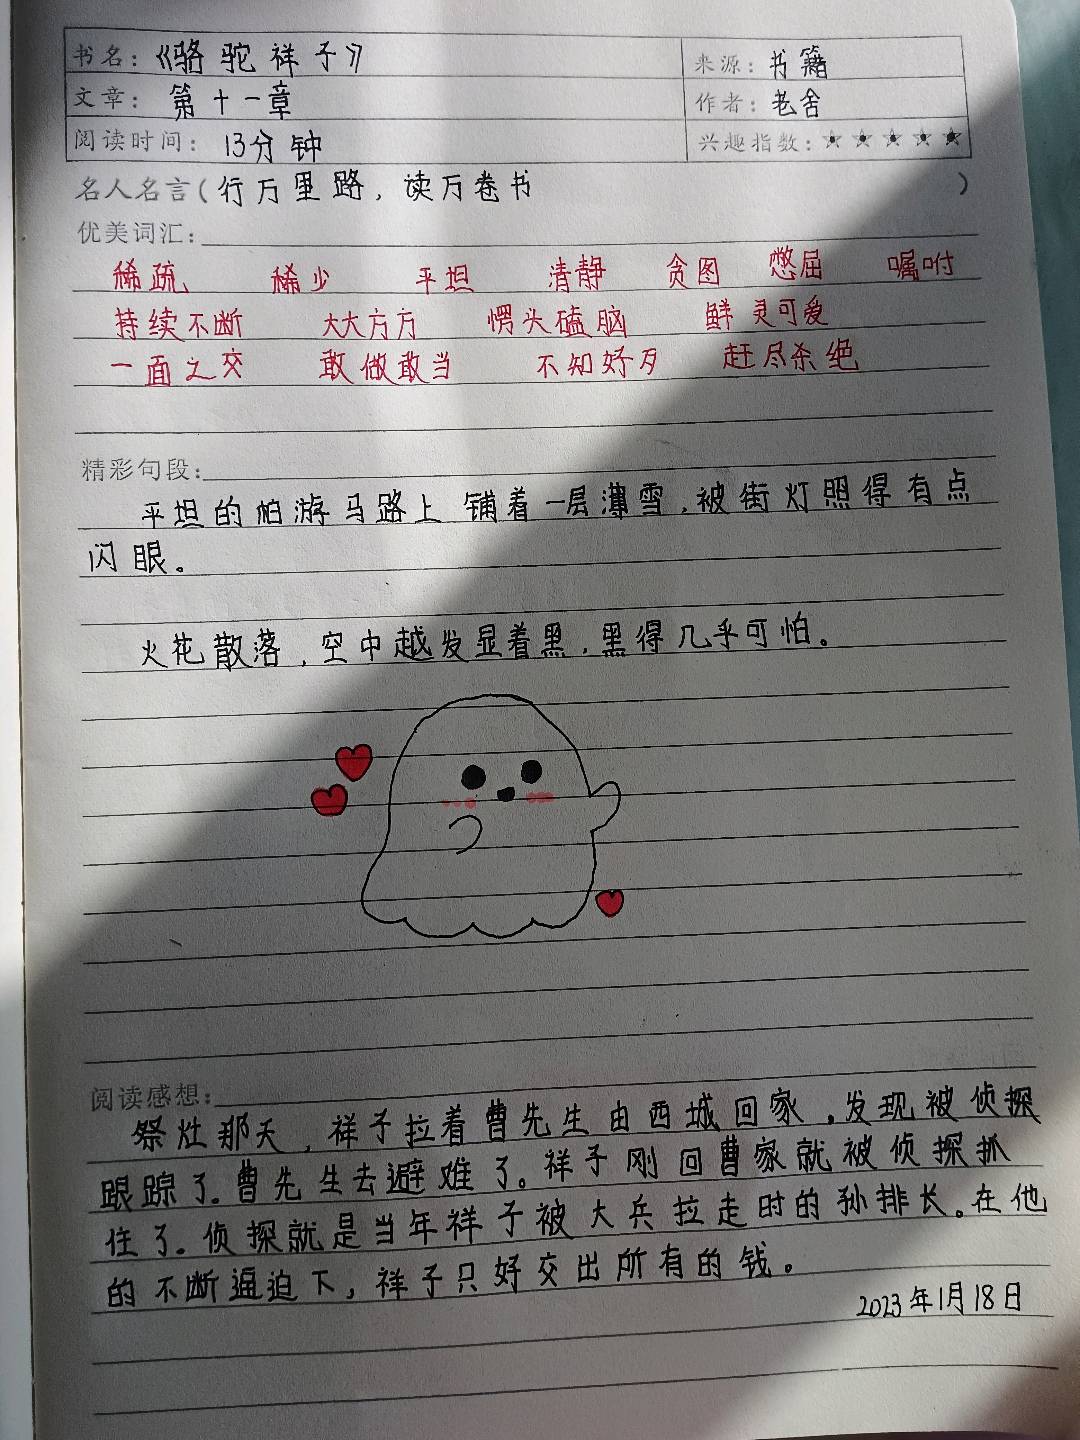 书名：《骆驼祥子》 来源：书籍
文章：第十一章 作者：老舍
阅读时间：13分钟 兴趣指数：☆☆☆☆★
名人名言（行万里路，读万卷书）
优美词汇：
稀疏 稀少 平坦 清静 贪图 憋屈 嘱咐
持续不断 大大方方 愣头磕脑 鲜灵可爱
一面之交 敢做敢当 不知好歹 赶尽杀绝
精彩句段：
平坦的柏游马路上铺着一层薄雪，被街灯照得有点
闪眼。
火花散落，空中越发显着黑，黑得几乎可怕。
阅读感想：
祭灶那天，祥子拉着曹先生由西城回家，发现被侦探
跟踪了。曹先生去避难了。祥子刚回曹家就被侦探抓
住了。侦探就是当年祥子被大兵拉走时的孙排长。在他
的不断逼迫下，祥子只好交出所有的钱。
2023年1月18日